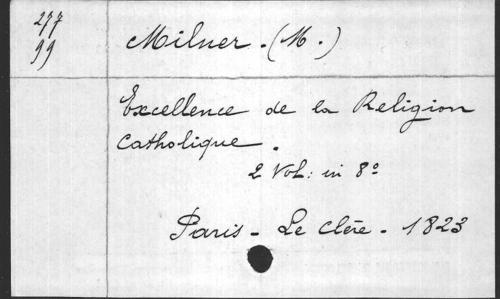 277
99
Milner. (M.)
Excellence de la Religion
Catholique.
2 Vol: in 8º
Paris - Le Clère - 1823